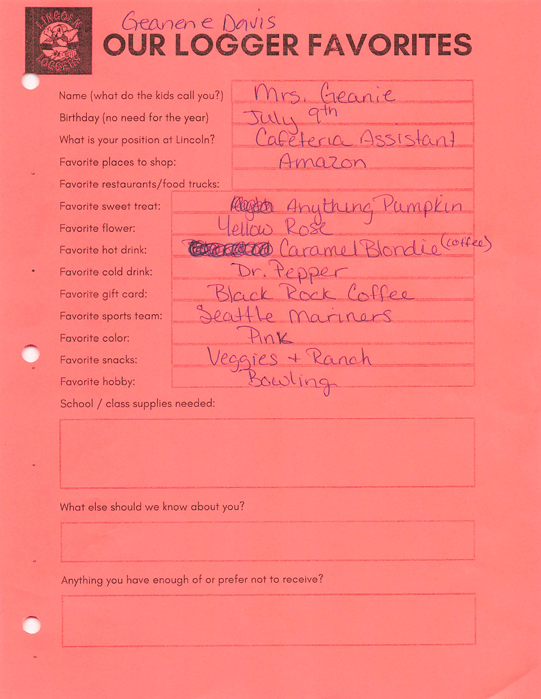 Geanene Davis
LINCOLN
LOGGERS
OUR LOGGER FAVORITES
Name (what do the kids call you?) Mrs. Geanie
Birthday (no need for the year) July 9th
What is your position at Lincoln? Cafeteria Assistant
Favorite places to shop: Amazon
Favorite restaurants/food trucks:
Favorite sweet treat: Anything Pumpkin
Favorite flower: Yellow Rose
Favorite hot drink: Caramel Blondie (coffee)
Favorite cold drink: Dr. Pepper
Favorite gift card: Black Rock Coffee
Favorite sports team: Seattle Mariners
Favorite color: Pink
Favorite snacks: Veggies + Ranch
Favorite hobby: Bowling
School / class supplies needed:
What else should we know about you?
Anything you have enough of or prefer not to receive?